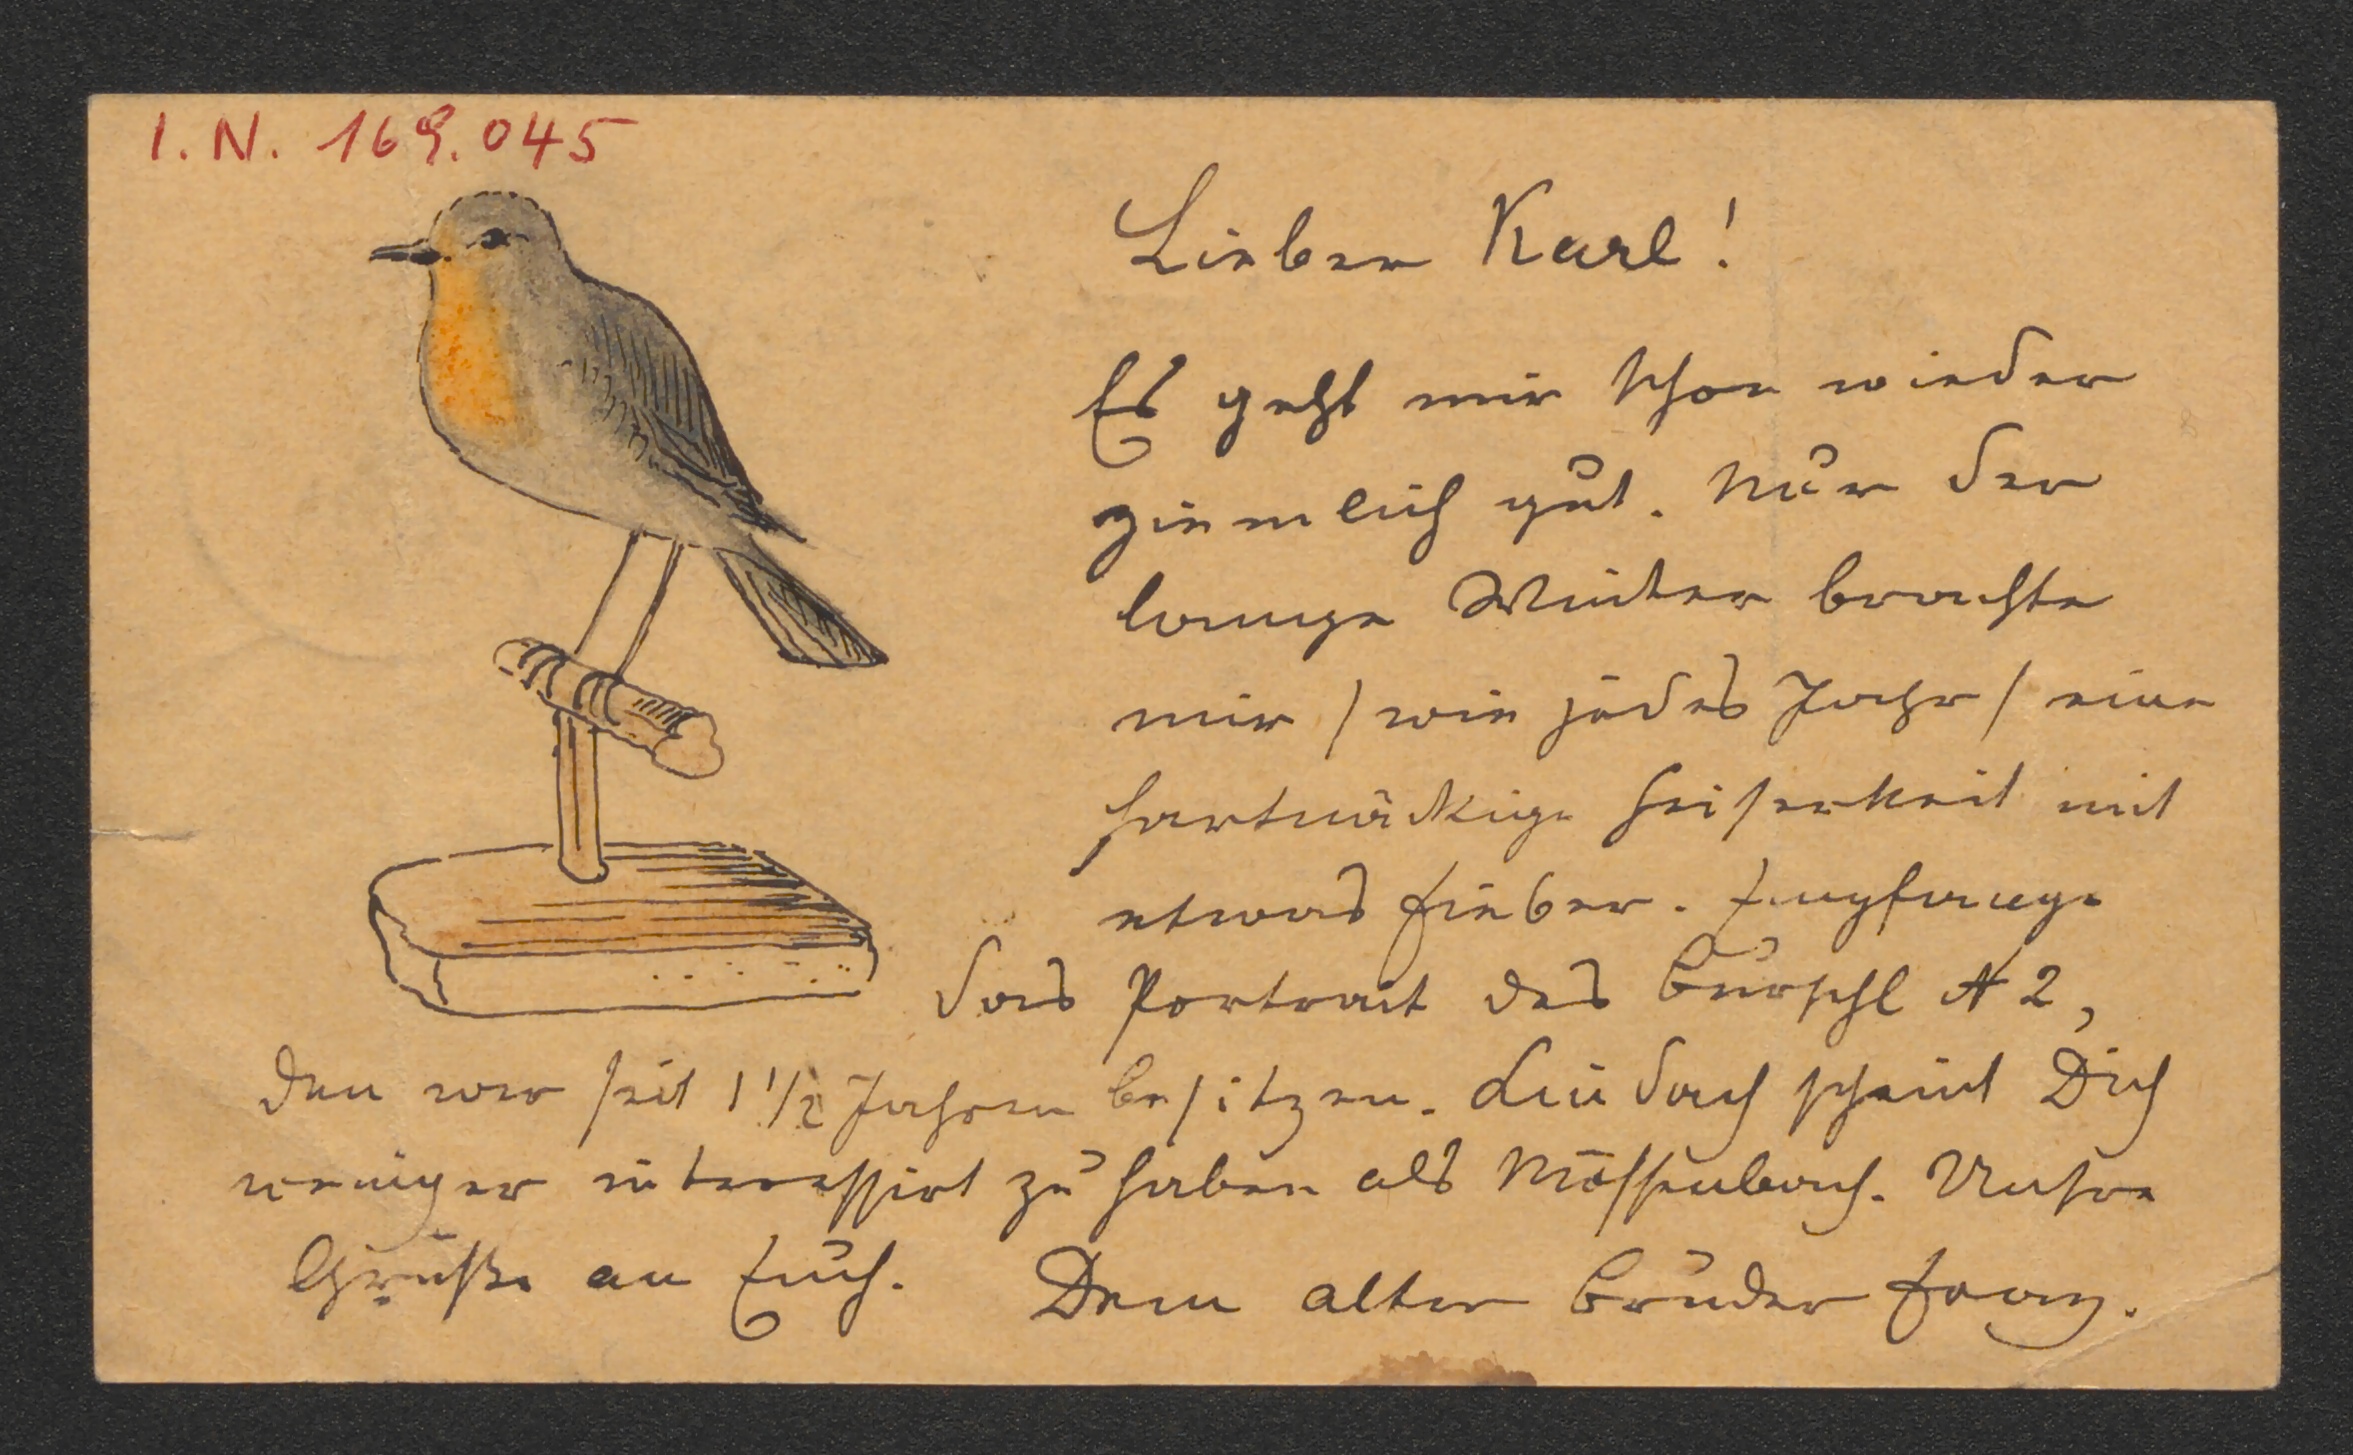 I.N. 169.045
Lieber Karl!
Es geht mir schon wieder
ziemlich gut. Nur der
lange Winter brachte
mir /wie jedes Jahr/ eine
hartnäckige Heiserkeit mit
etwas Fieber. Empfange
das Portrait des Burschl N 2,
den wir seit 1 1/2 Jahren besitzen. Lindach scheint Dich
weniger interessirt zu haben als Mössenbach. Unsre
Grüße an Euch. Dein alter Bruder Franz.